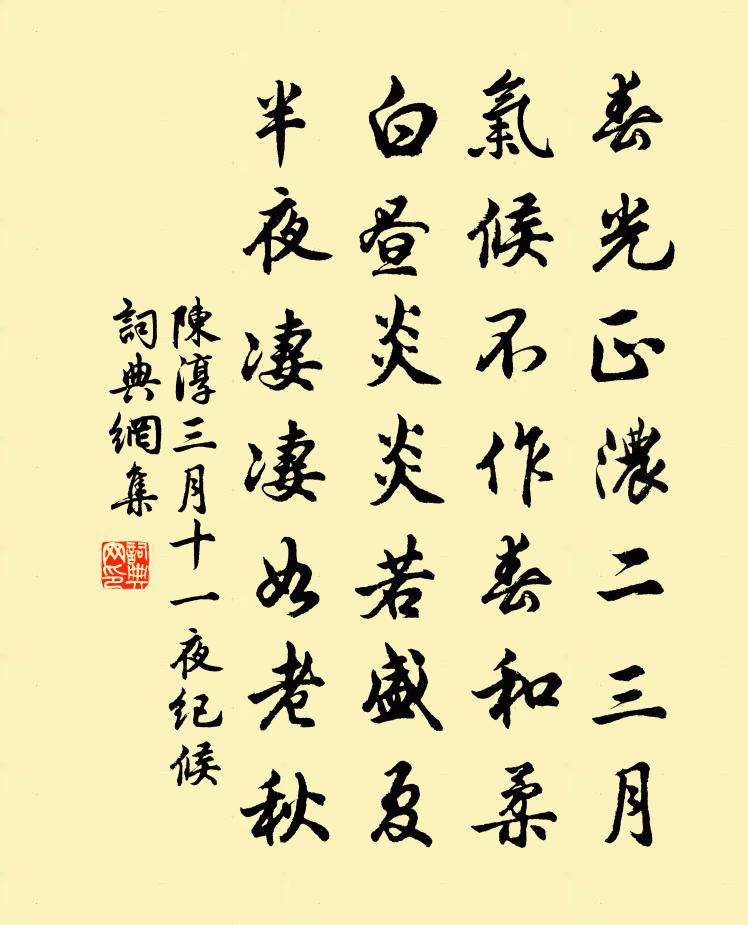 春光正濃二三月
氣候不作春和柔
白晝炎炎若盛夏
半夜凄凄如老秋
陳淳三月十一夜纪候
詞典網集
詞典网印